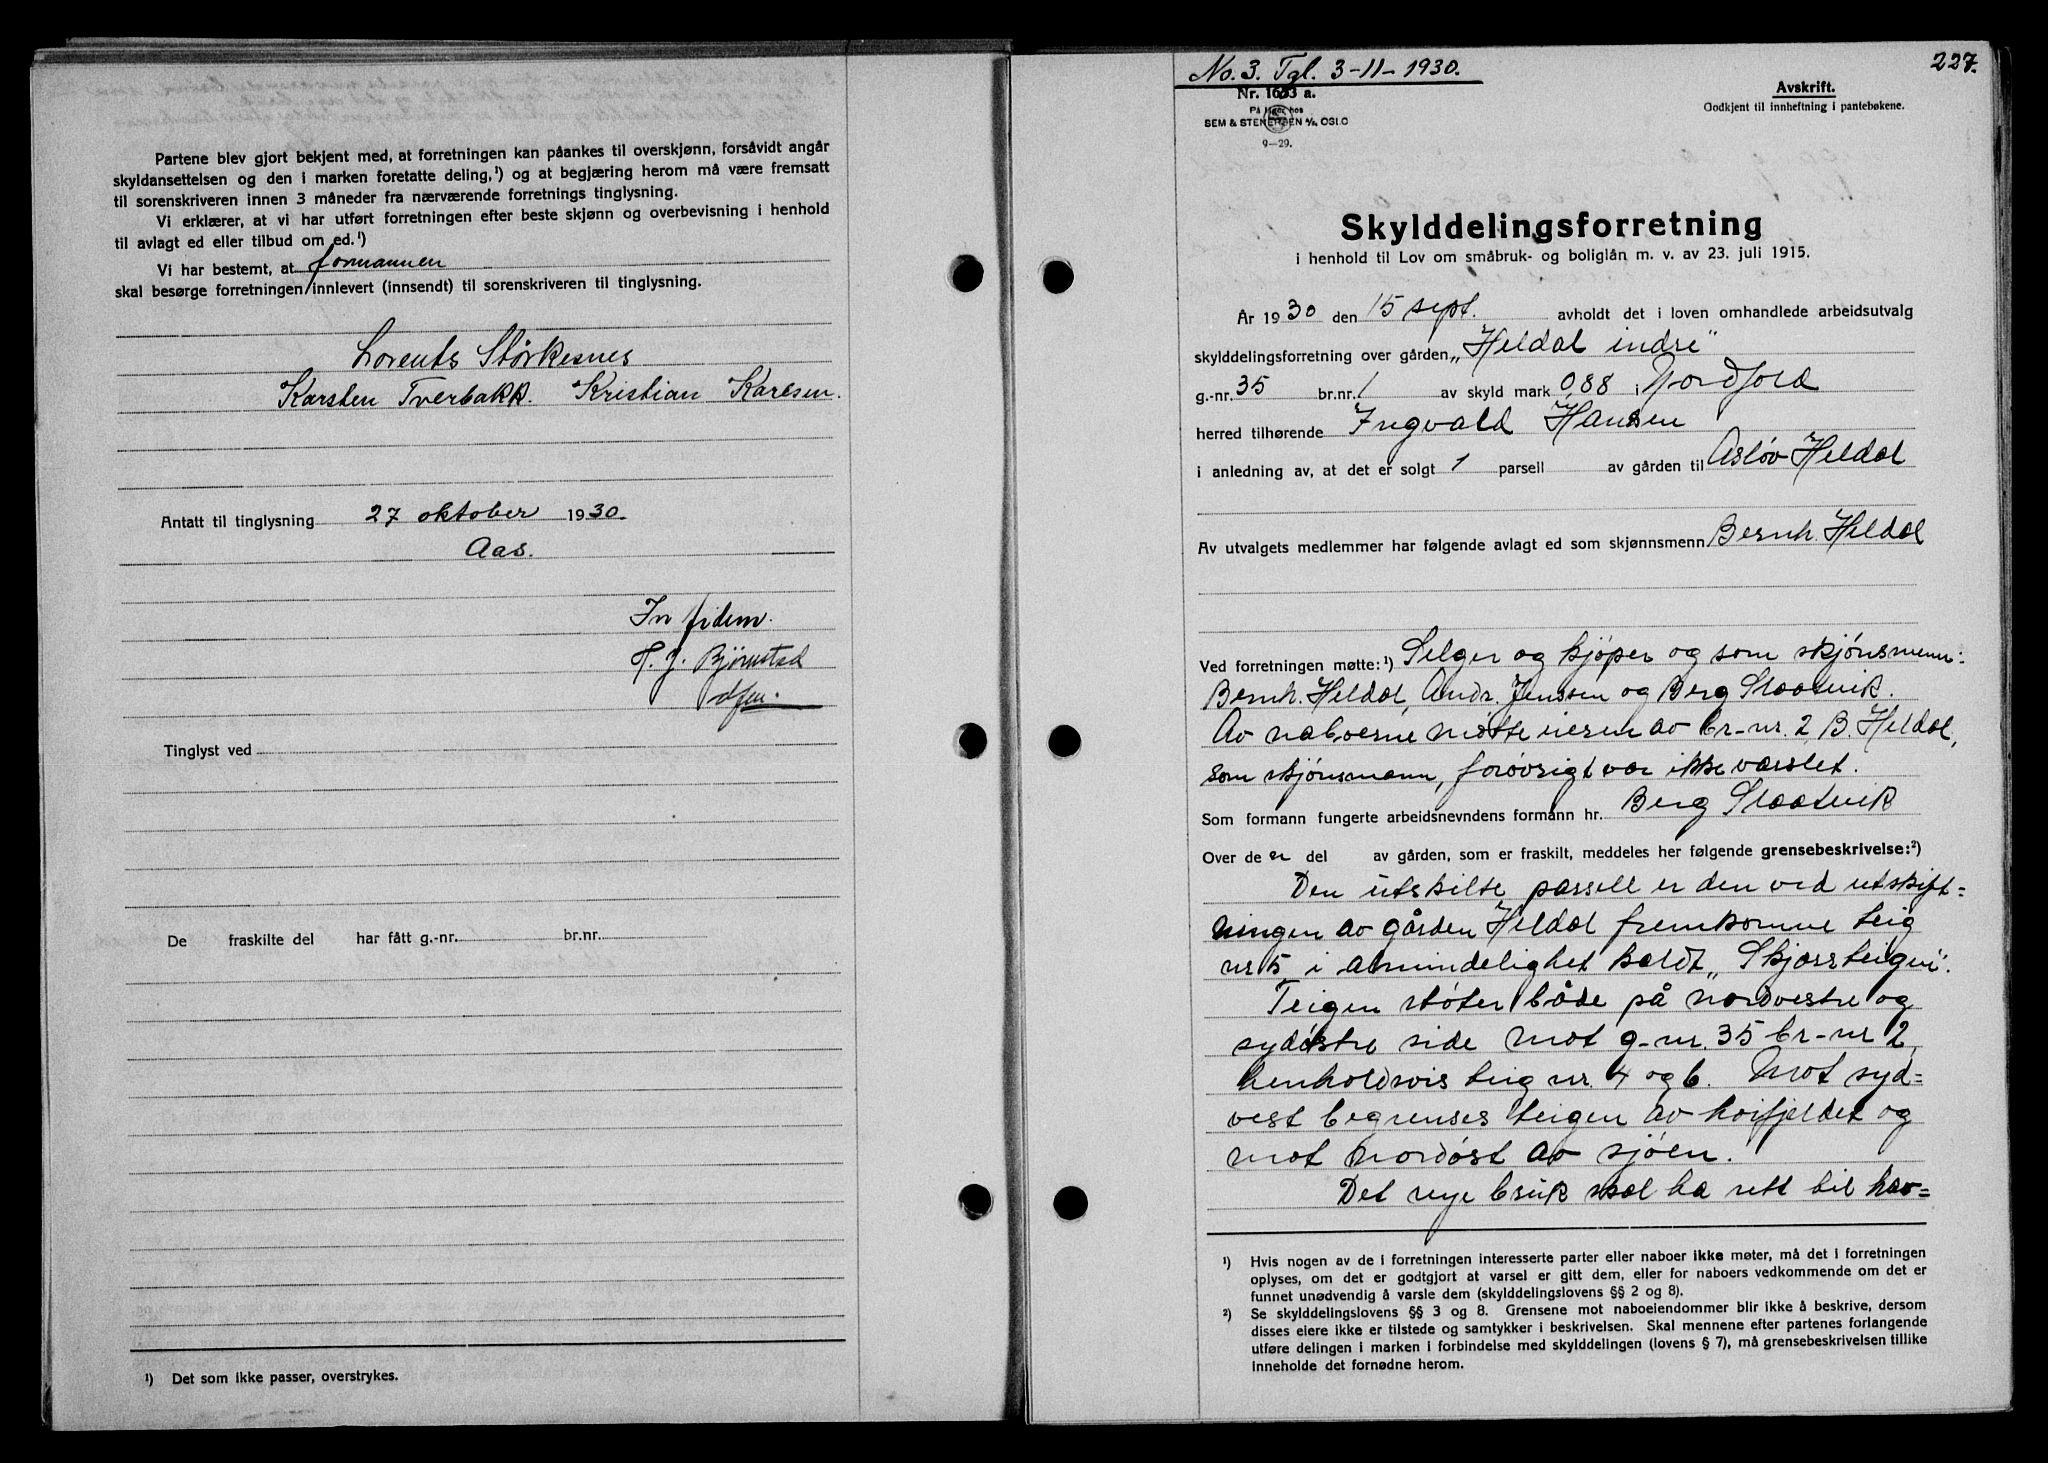 Partene blev gjort bekjent med, at forretningen kan påankes til overskjønn, forsåvidt angår
skyldansettelsen og den i marken foretatte deling,¹) og at begjæring herom må være fremsatt
til sorenskriveren innen 3 måneder fra nærværende forretnings tinglysning.
Vi erklærer, at vi har utført forretningen efter beste skjønn og overbevisning i henhold
til avlagt ed eller tilbud om ed.¹)
Vi har bestemt, at formannen
skal besørge forretningen innlevert (innsendt) til sorenskriveren til tinglysning.
Lorents Størkesnes
Karsten Tverbakk. Kristian Karlsen.
Antatt til tinglysning 27 oktober 1930.
Aas.
In fidem.
T. J. Bjørnstad
Tinglyst ved
De fraskilte del har fått g.-nr. br.nr.
¹) Det som ikke passer, overstrykes.
227.
No. 3. Tgl. 3-11-1930.
Nr. 1603 a.
På lager hos
SEM & STENERSEN A/S, OSLO
9-29.
Avskrift.
Godkjent til innheftning i pantebøkene.
Skylddelingsforretning
i henhold til Lov om småbruk- og boliglån m. v. av 23. juli 1915.
År 1930 den 15 sept. avholdt det i loven omhandlede arbeidsutvalg
skylddelingsforretning over gården „Heldal indre"
g.-nr. 35 br.nr. 1 av skyld mark 0,88 i Nordfold
herred tilhørende Ingvald Hansen
i anledning av, at det er solgt 1 parsell av gården til Asløv Heldal
Av utvalgets medlemmer har følgende avlagt ed som skjønnsmenn Bernh. Heldal
Ved forretningen møtte:¹) Selger og kjøper og som skjønsmenn:
Bernh. Heldal, Andr. Jenssen og Berg Slaatvik.
Av naboerne møtte eieren av br-nr. 2, B. Heldal,
som skjønsmann, forøvrigt var ikke varslet.
Som formann fungerte arbeidsnevndens formann hr. Berg Slaatvik
Over de en del av gården, som er fraskilt, meddeles her følgende grensebeskrivelse:²)
Den utskilte parsell er den ved utskift=
ningen av gården Heldal fremkomne teig
nr 5, i almindelighet kaldt „Skjærsteigen".
Teigen støter både på nordvestre og
sydøstre side mot g-nr. 35 br-nr 2,
henholdsvis teig nr. 4 og 6. Mot syd=
vest begrenses teigen av høifjeldet og
mot nordøst av sjøen.
Det nye bruk skal ha rett til hav=
¹) Hvis nogen av de i forretningen interesserte parter eller naboer ikke møter, må det i forretningen
oplyses, om det er godtgjort at varsel er gitt dem, eller for naboers vedkommende om det er
funnet unødvendig å varsle dem (skylddelingslovens §§ 2 og 8).
²) Se skylddelingslovens §§ 3 og 8. Grensene mot naboeiendommer blir ikke å beskrive, dersom
disses eiere ikke er tilstede og samtykker i beskrivelsen. Skal mennene efter partenes forlangende
utføre delingen i marken i forbindelse med skylddelingen (lovens § 7), må grensebeskrivelsen tillike
inneholde det fornødne herom.